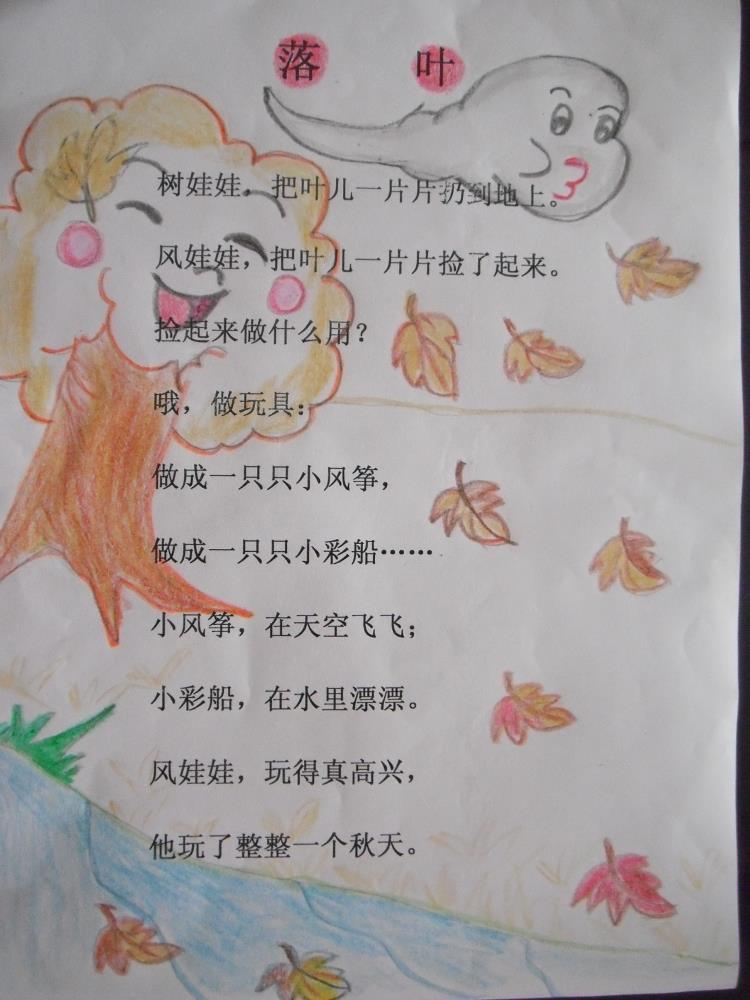 落叶
树娃娃，把叶儿一片片扔到地上。
风娃娃，把叶儿一片片捡了起来。
捡起来做什么用？
哦，做玩具：
做成一只只小风筝，
做成一只只小彩船……
小风筝，在天空飞飞；
小彩船，在水里漂漂。
风娃娃，玩得真高兴，
他玩了整整一个秋天。